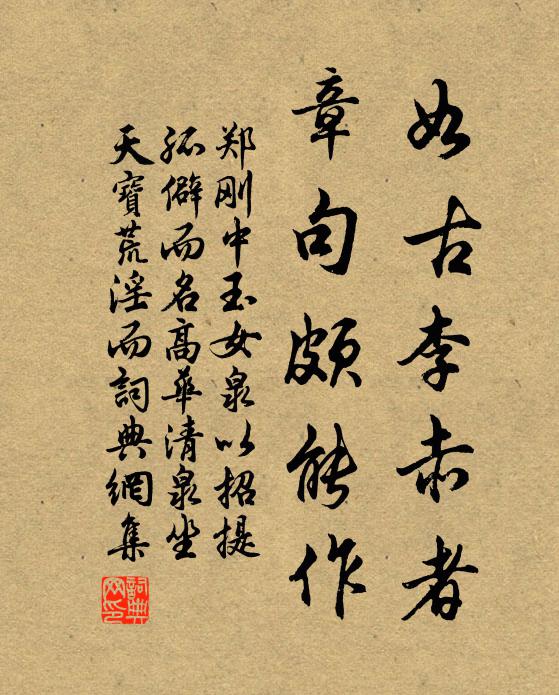 如古李赤者
章句颇能作
郑刚中玉女泉以招提
孤僻而名高华清泉坐
天寶荒淫而詞典網集
詞典網印